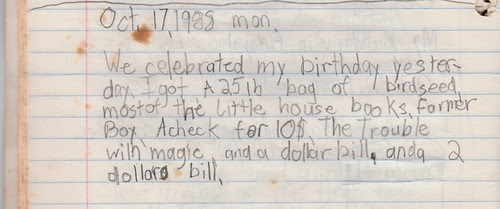 Oct, 17, 1985 mon.
We celebrated my birthday yester-
day. I got A 25lb bag of birdseed,
most of the little house books, Farmer
Boy, A check for 10$, The Trouble
with magic, and a dollar bill, and a 2
dollars bill,